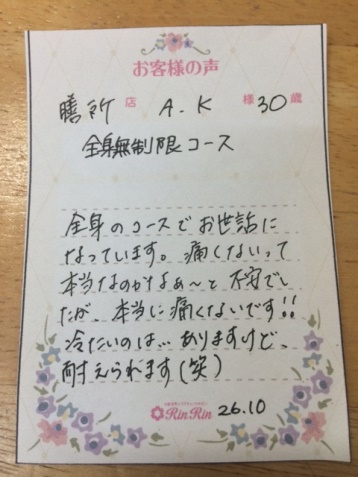 お客様の声
膳所 店 A.K 様 30 歳
全身無制限コース
全身のコースでお世話に
なっています。痛くないって
本当なのかなぁ〜と不安でし
たが、本当に痛くないです!!
冷たいのは…ありますけど、
耐えられます(笑)
RinRin 26.10